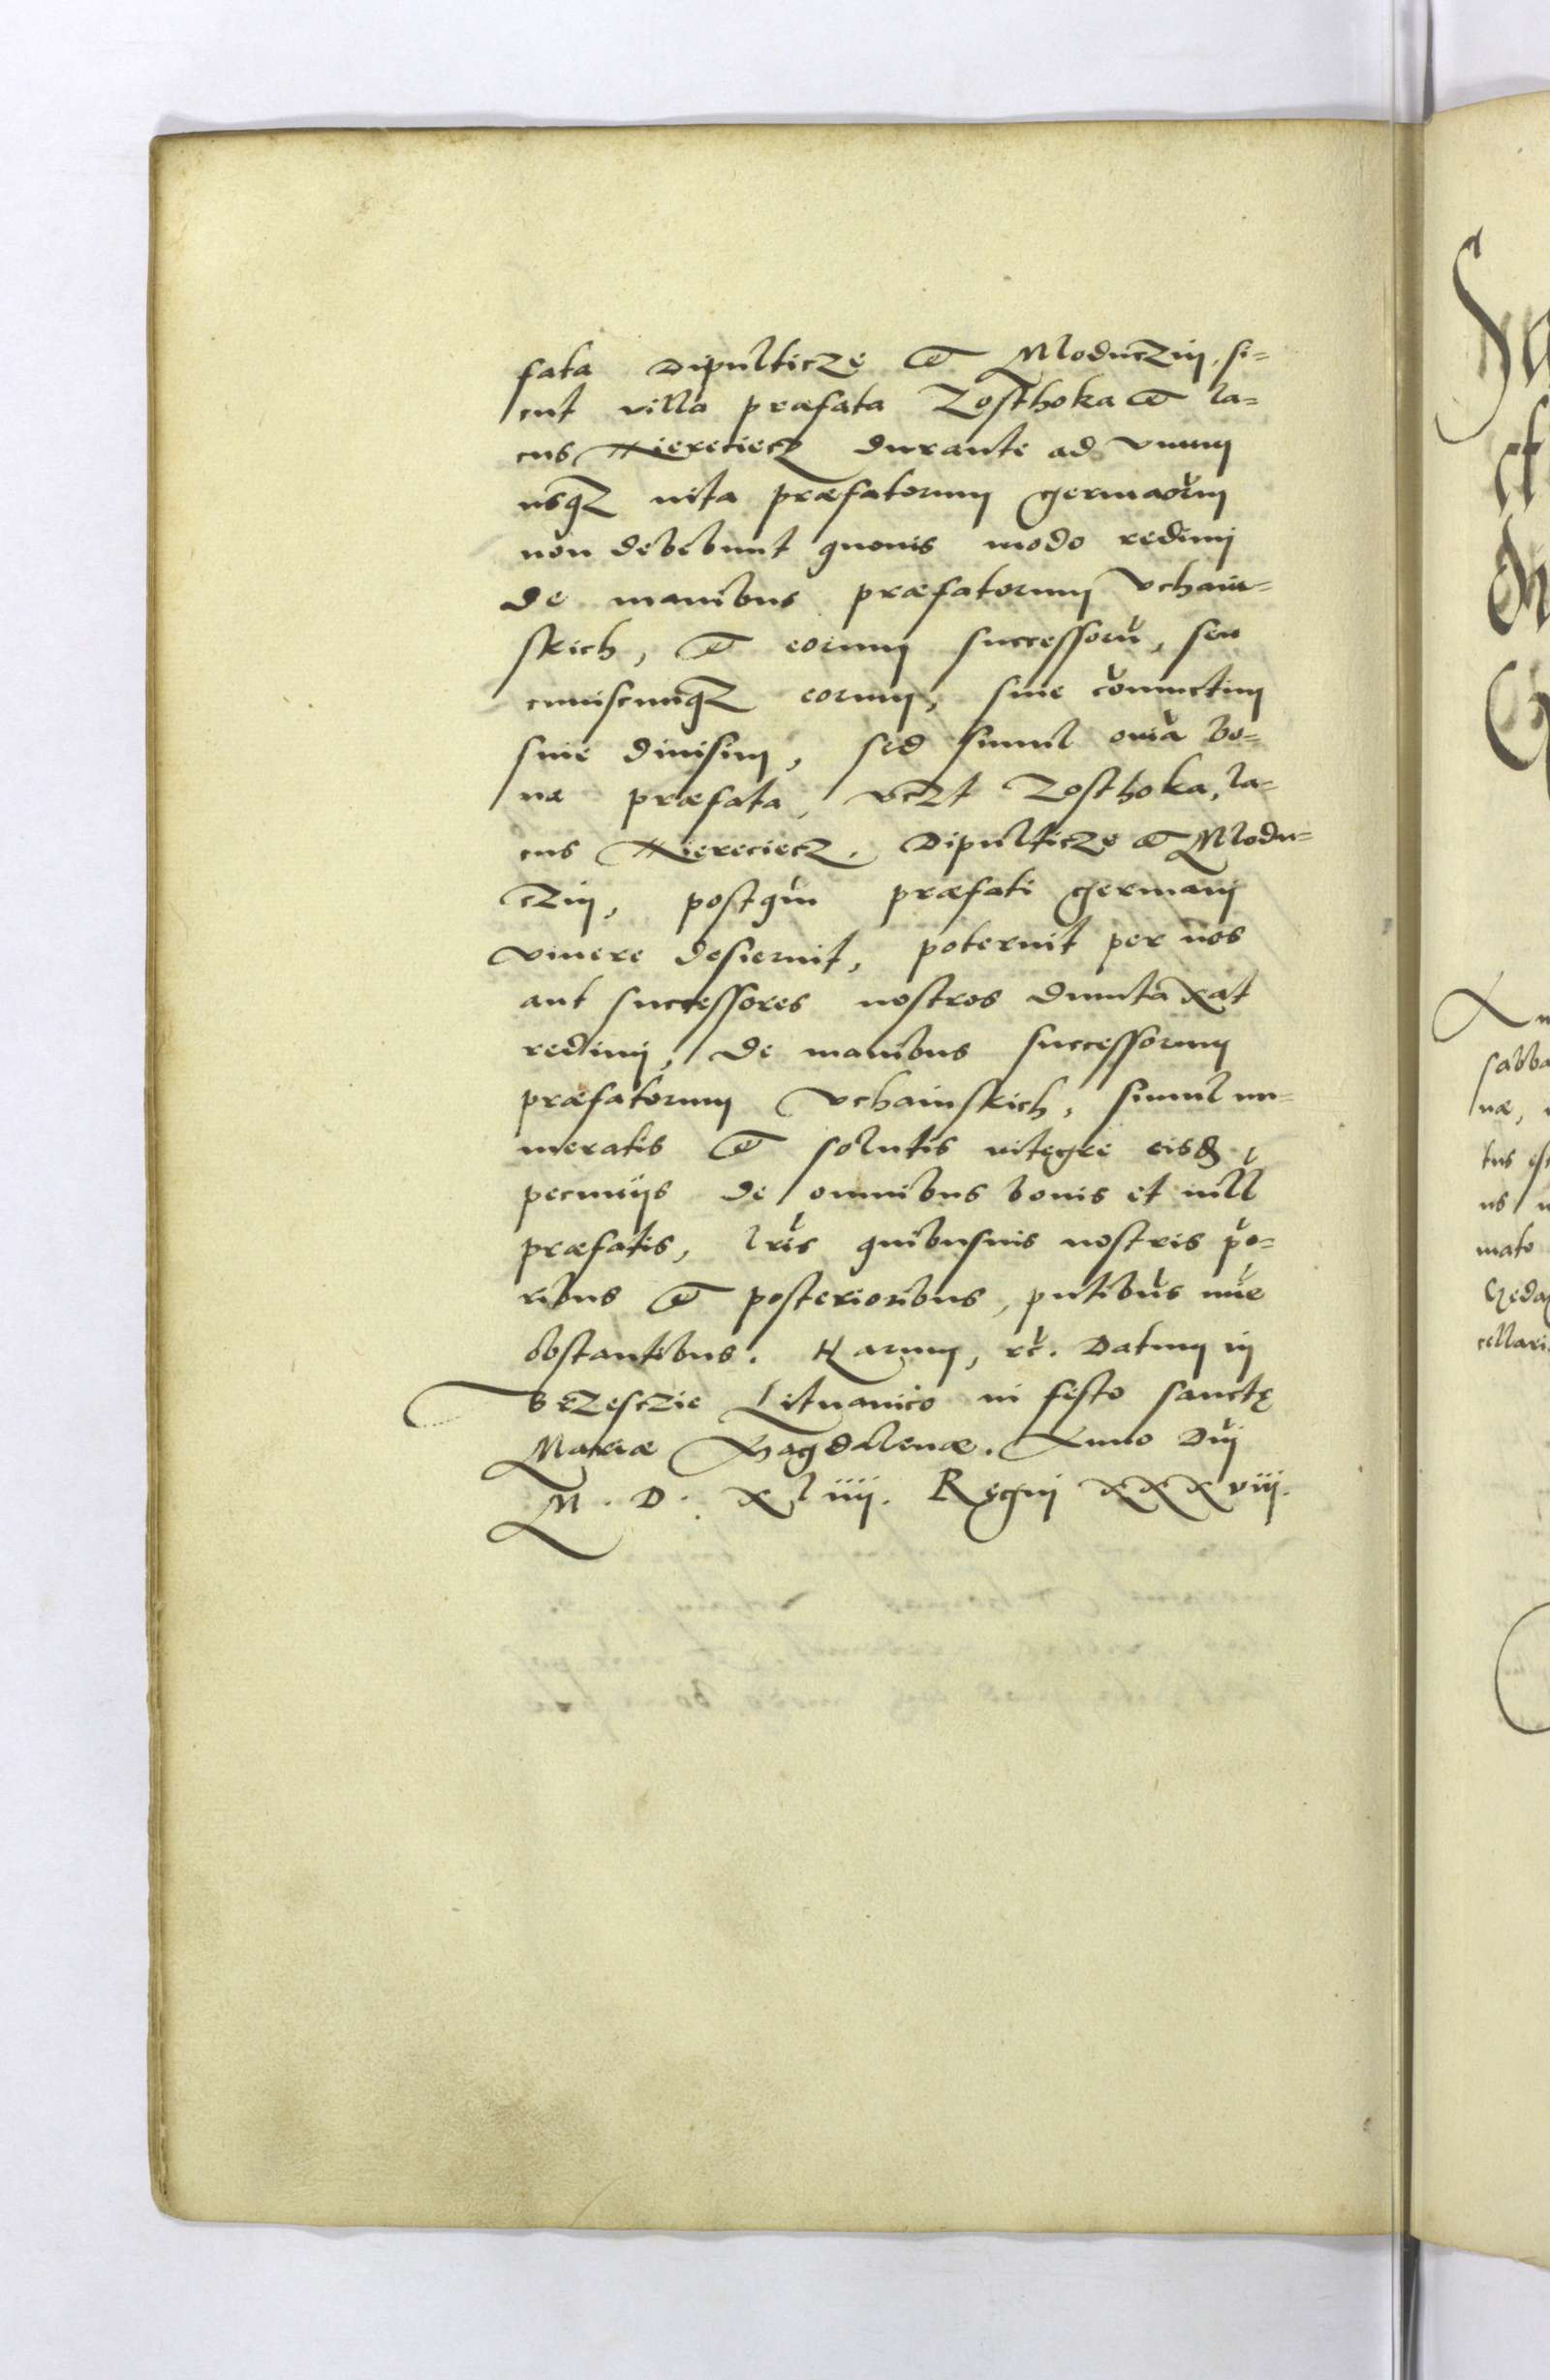 fata Dipulticzę et Mloduczin, si=
cut villa præfata Zosthoka et la=
cus Wiereciecz durante ad vnum
usq₃ uita præfatorum germaõrum
non debebunt quouis modo redimi
de manibus præfatorum Vchain=
skich, et eorum successorũ, seu
cuuiscunq₃ eorum, siue cõniunctim
siue diuisim, sed simul oĩa bo=
na præfata, vcꝫt Zosthoka, la=
cus Wiereciecz, Dipulticzę et Mlodu=
czin, postq̃m præfati germani
viuere desierint, poterunt per nos
aut successores nostros duntaxat
redimi, de manibus successorum
præfatorum Vchainskich, simul nu=
meratis et solutis integre eisdẽ
pecunijs de omnibus bonis et uill̃
præfatis, lr̃is quibusuis nostris p̃o=
ribus et posterioribus, pñtibus nõe
obstantibus. Harum, rc̃. Datum in
Brzesczie Lituanico in festo sanctę
Mariæ Magdalenæ. Anno Dñi
M. D. xliiij. Regni xxxviij.
Sa
Ch
An
sabba
næ,
tus est
us
mato
Gedan
cellari